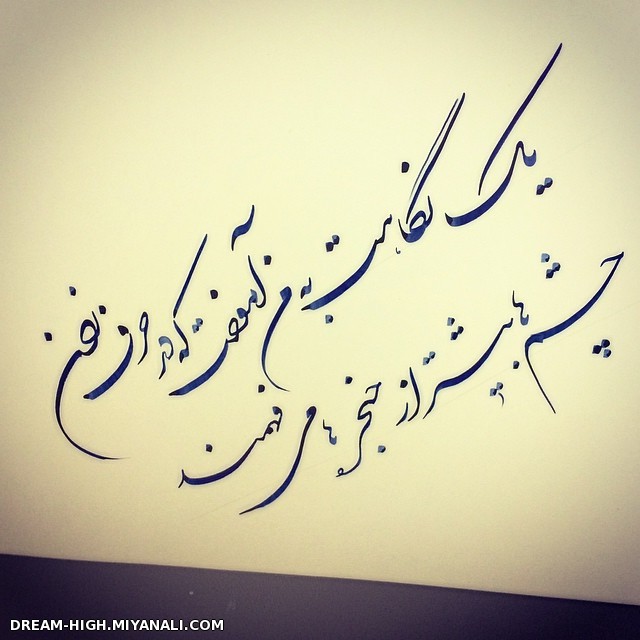 یک نگاهت به من آموخت که در حرف زدن
چشم ها بیشتر از حنجره ها می فهمند
DREAM-HIGH.MIYANALI.COM